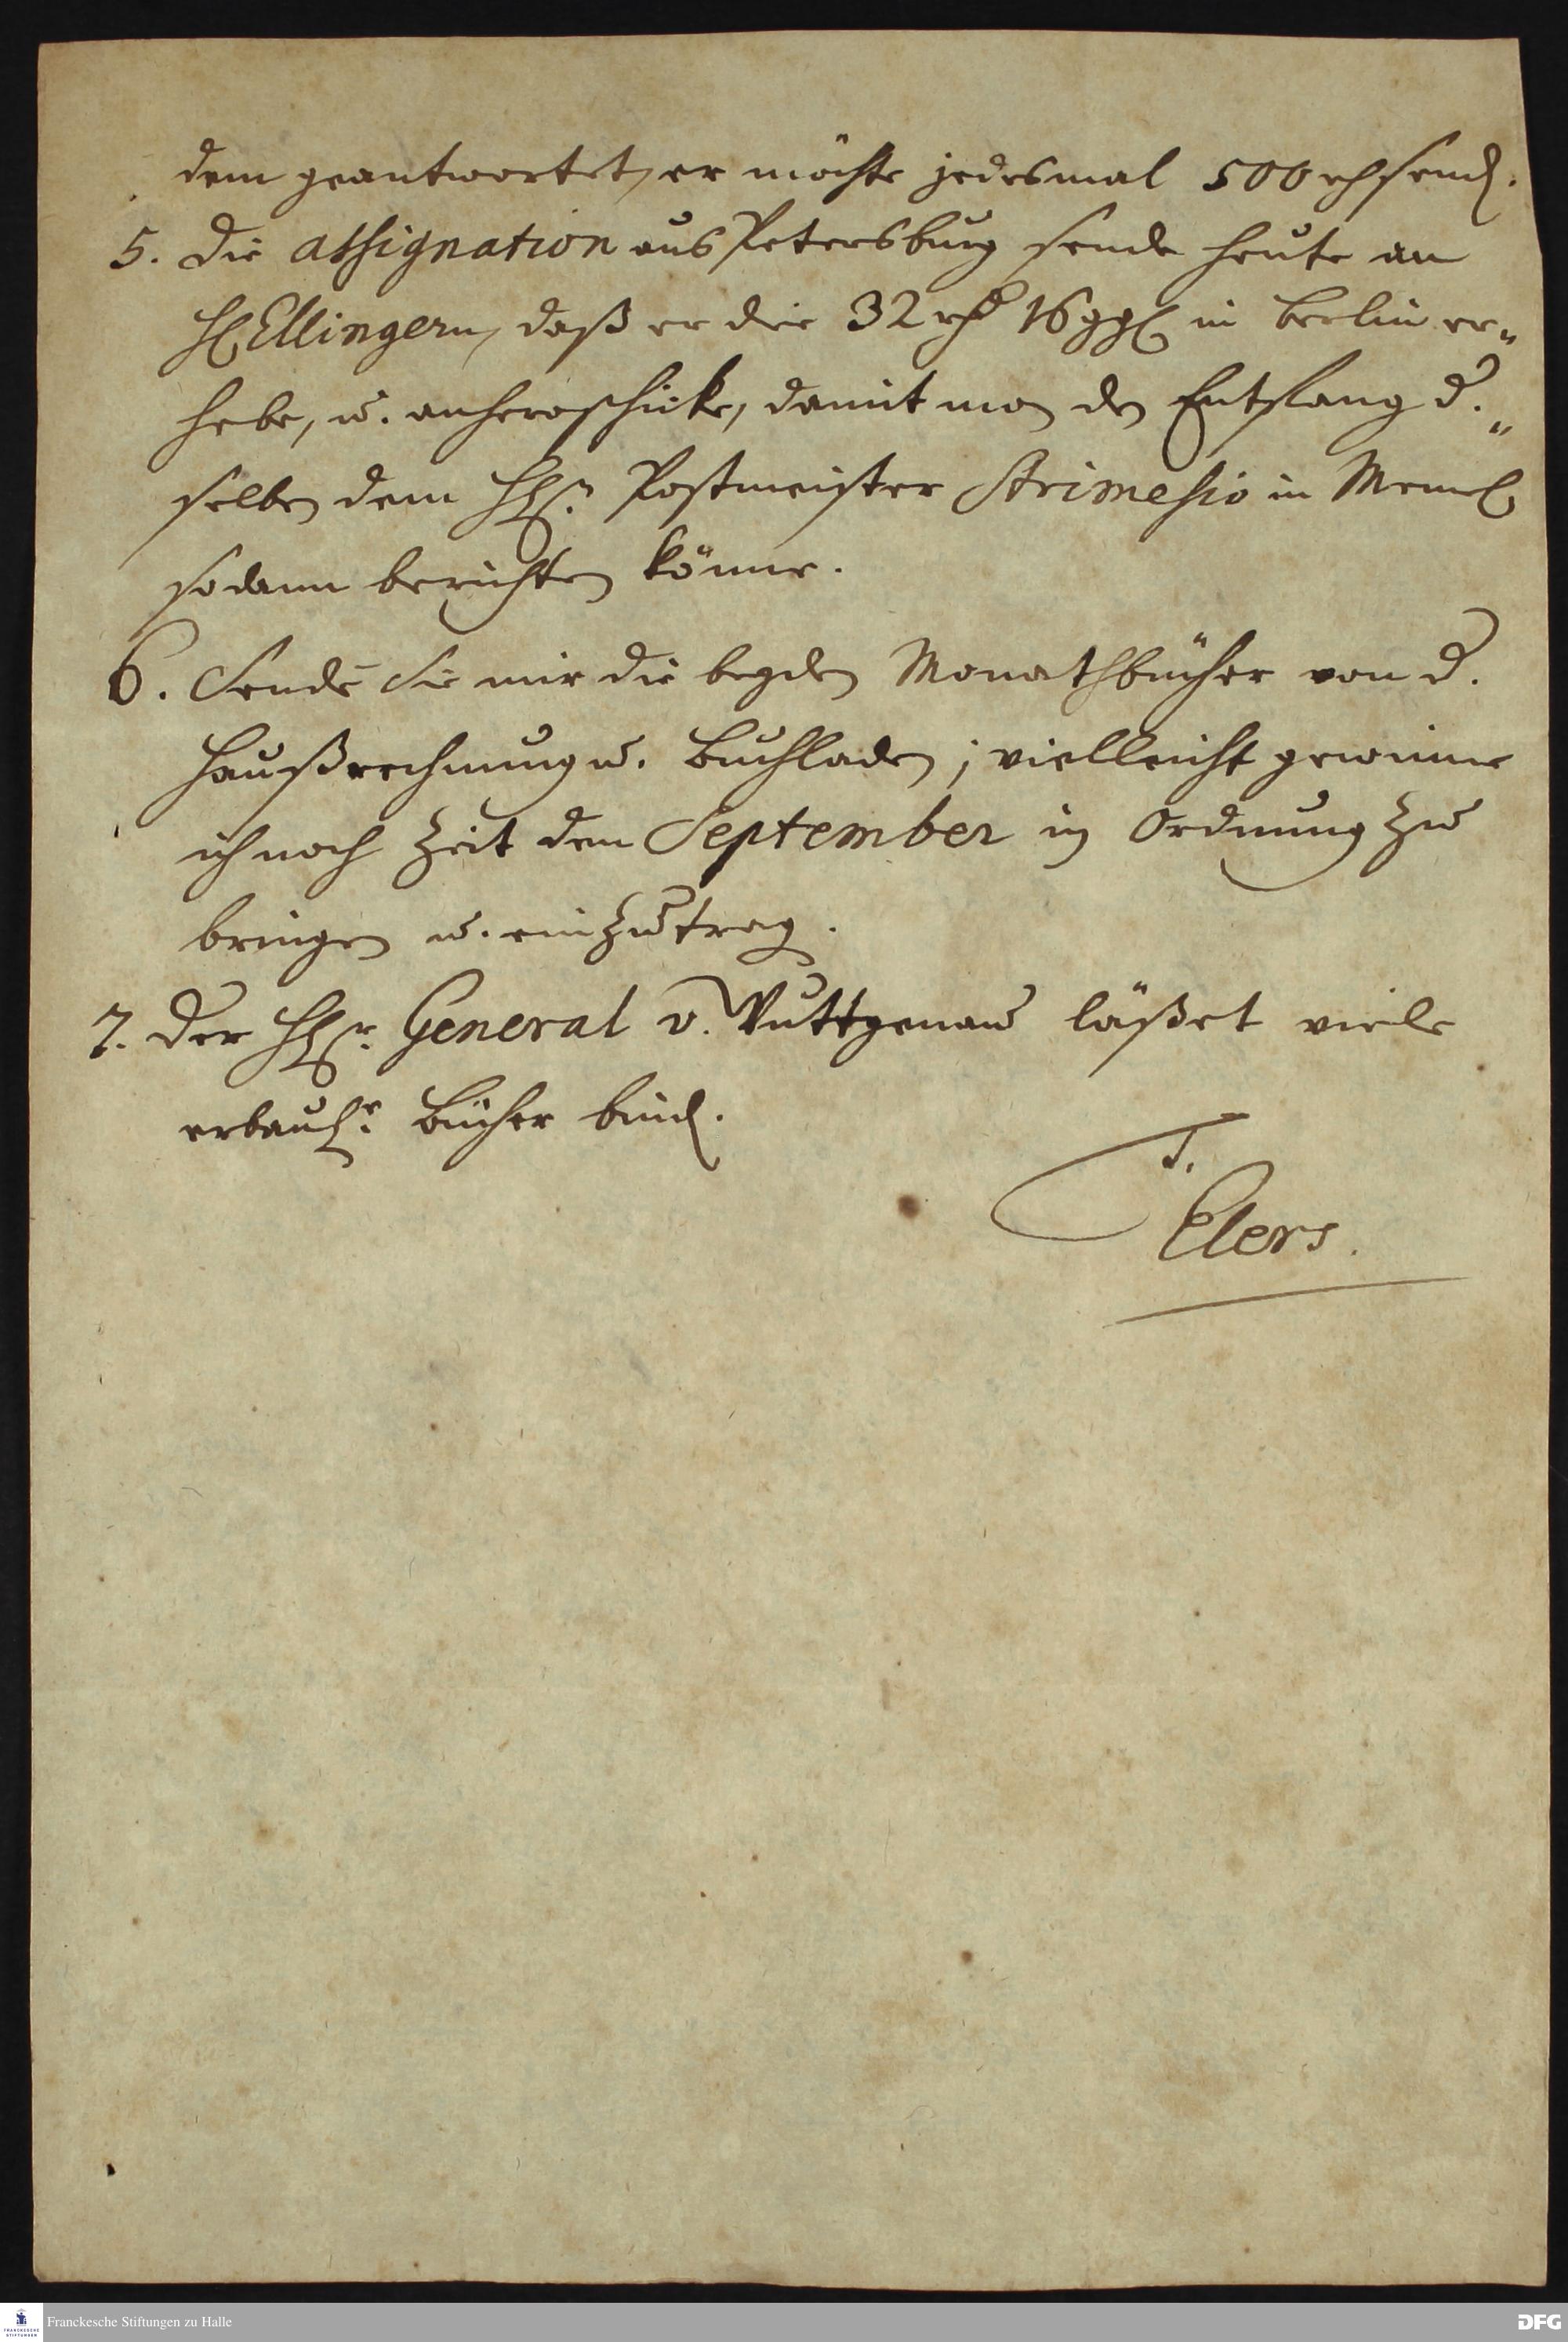 dem geantwortet, er möchte jedesmal 500 rh send.
5. Die assignation aus Petersburg sende heute an
H Ellingern, daß er die 32 rh 16 ggl in Berlin er=
hebe, u. anheroschicke, damit man den Entfang d.=
selben dem H. Postmeister in Memel
sodann berichten könne.
6. Sende Sie mir die beyden Monathbücher von d.
Haußrechnung u. Buchladen; vielleicht gewinne
ich noch Zeit den September in Ordnung zu
bringen u. einzutrag.
7. Der H. General v. Wuttgenau läßet viele
erbaul. Bücher bind.
Elers.
Franckesche Stiftungen zu Halle
DFG